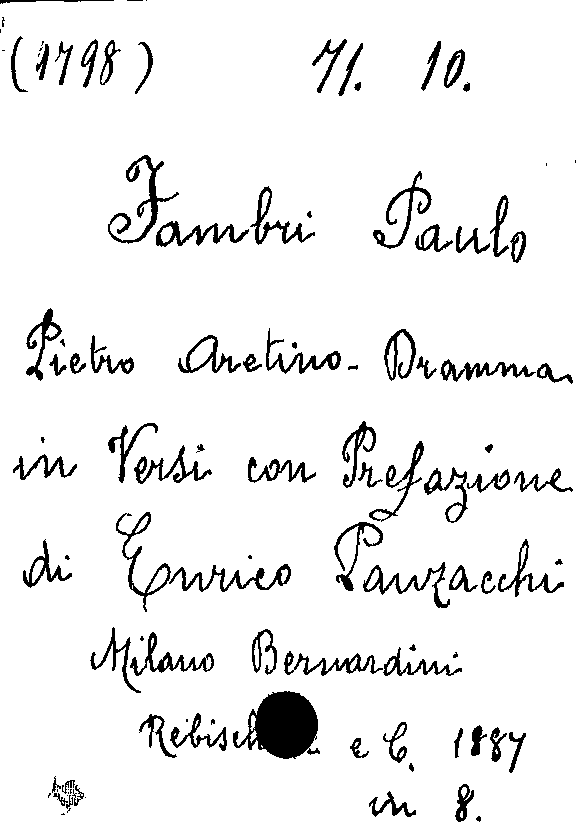 (1798) 71. 10.
Fambri Paulo
Pietro Aretino - Dramma
in Versi con Prefazione
di Enrico Panzacchi
Milano Bernardini
e C. 1887
in 8.